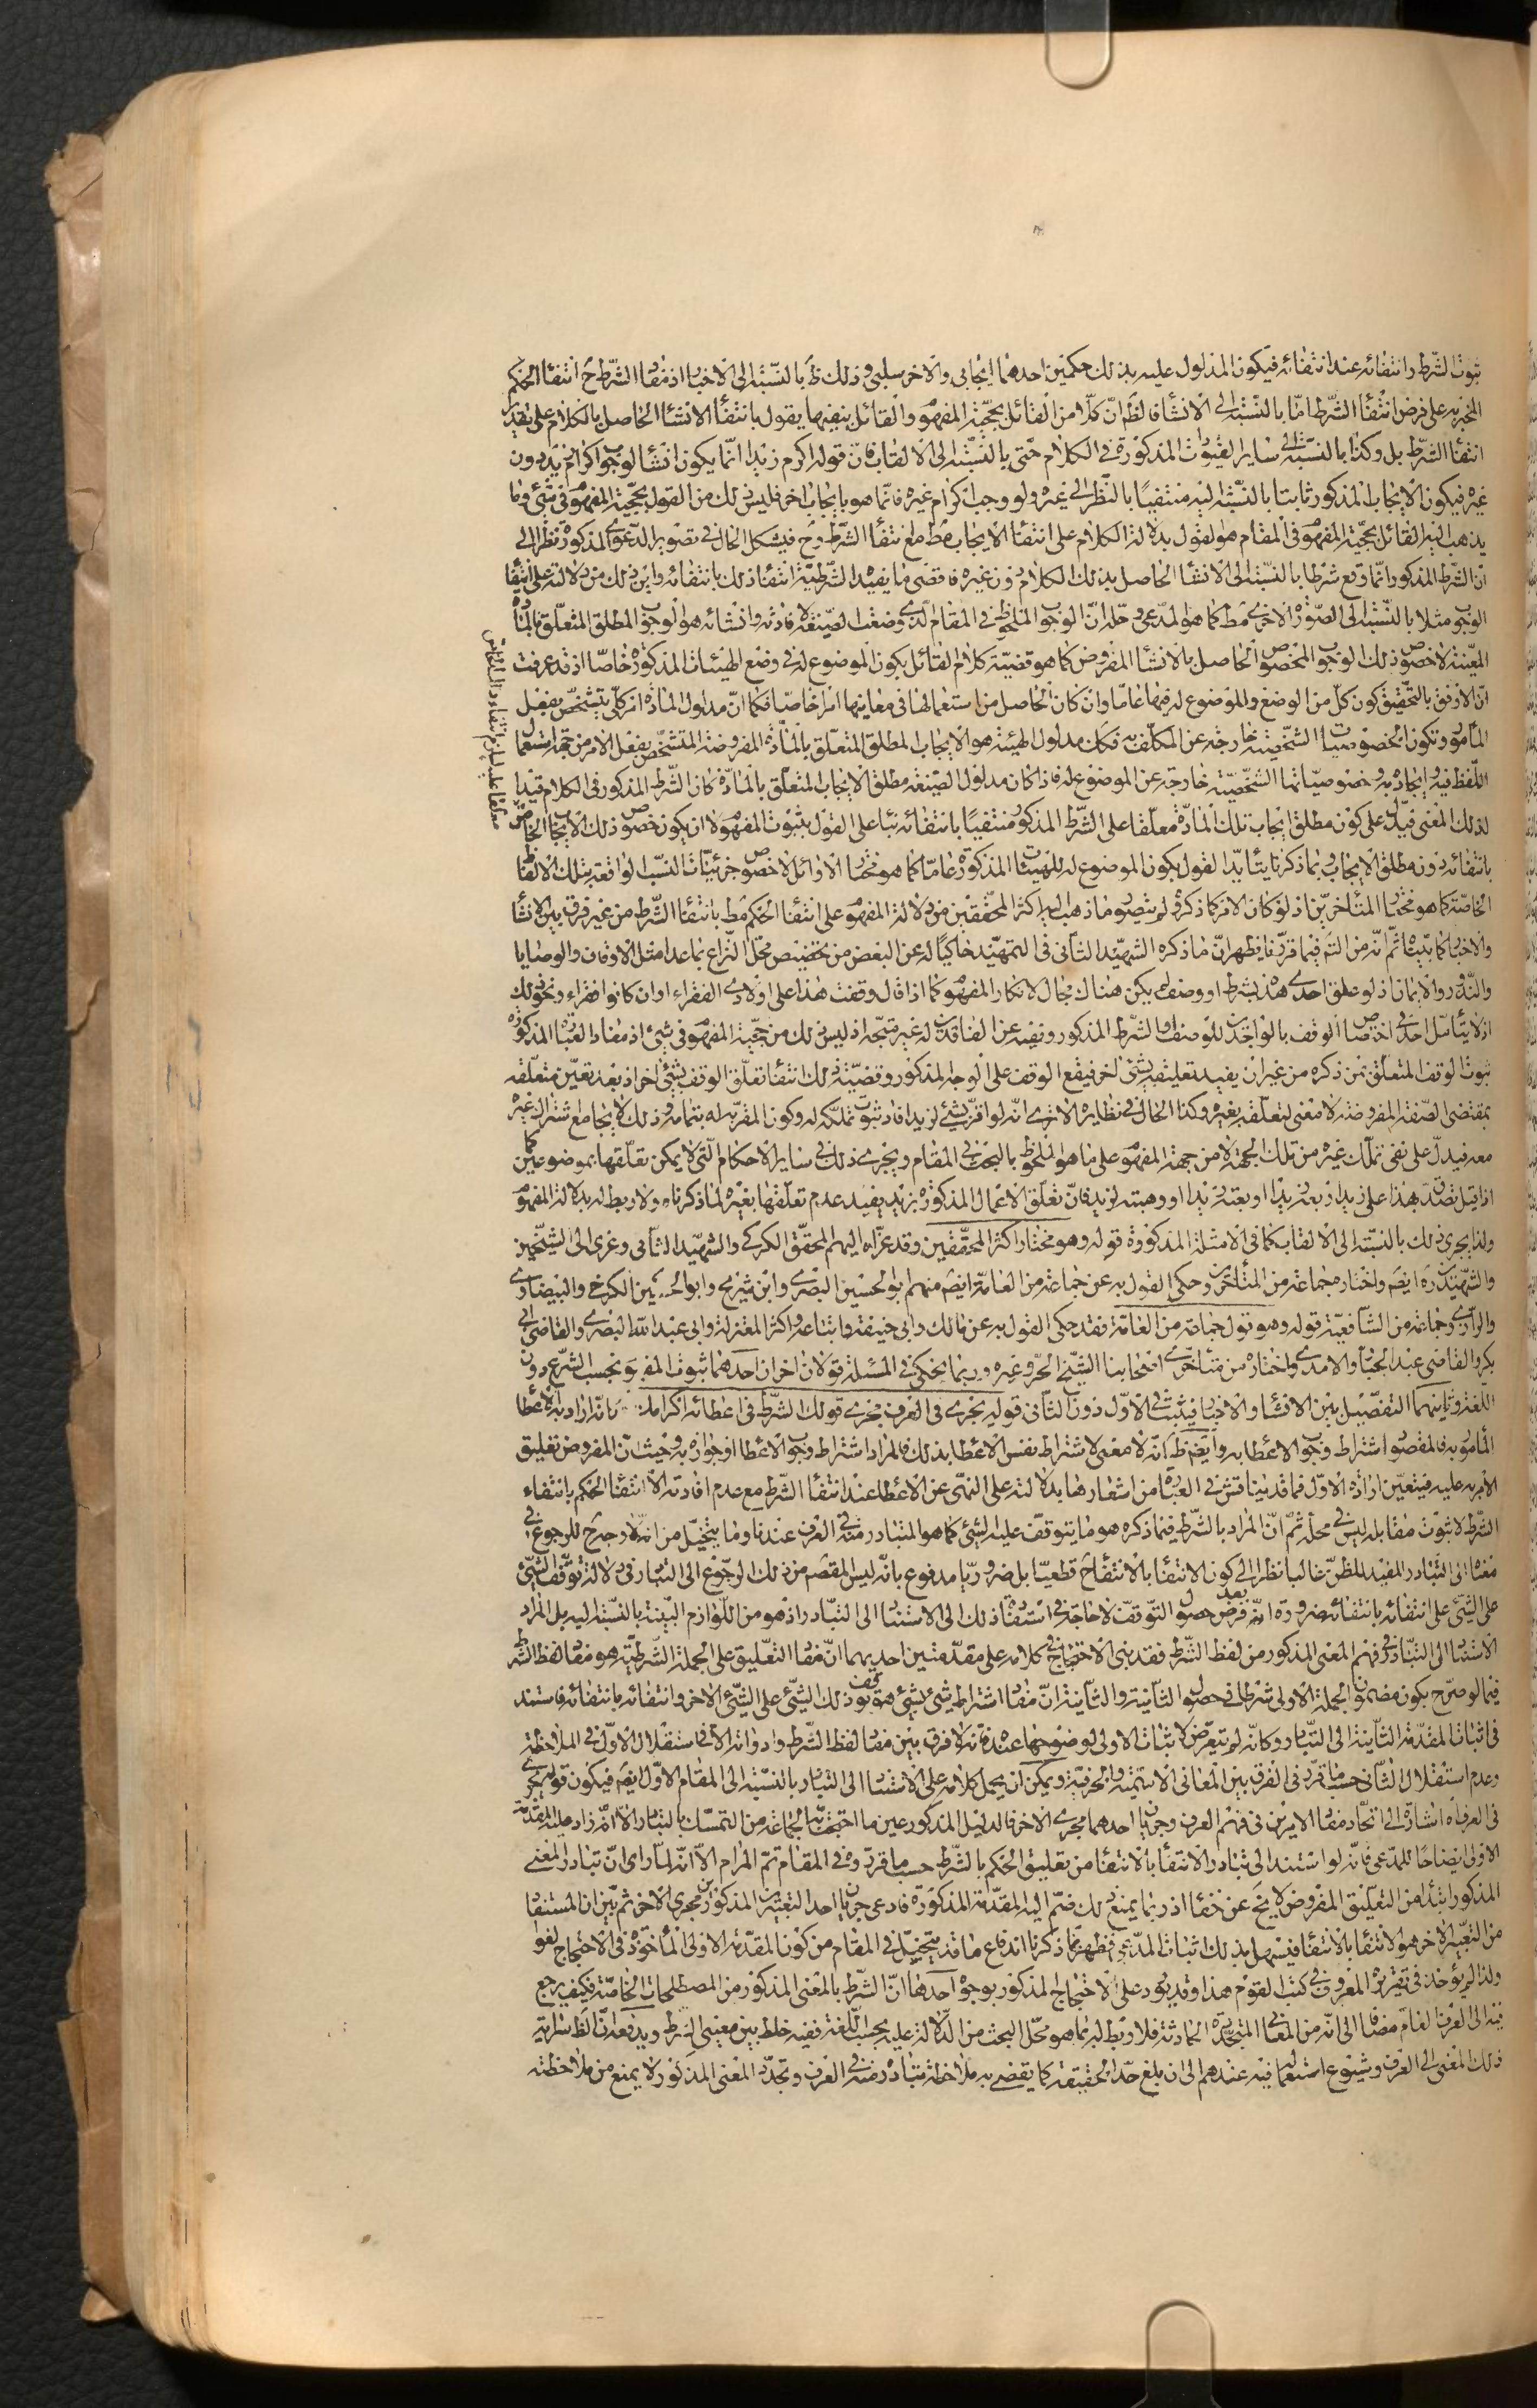 ثبوت الشرط وانتفائه عند انتفائه فيكون المدلول عليه بذلك حكمين احدهما ايجابى والاخر سلبى وذلك ظ بالنسبة الى الاخبار اذ مفاد الشرط ح انتفاء الحكم
المخبر به على فرض انتفاء الشرط امّا بالنسبة الى الانشاء فالظ انّ كلّا من القائل بحجّية المفهوم والقائل بنفيها يقول بانتفاء الانشاء الحاصل بالكلام على تقدير
انتفاء الشرط بل وكذا بالنسبة الى ساير القيودات المذكورة فى الكلام حتى بالنسبة الى الالقاب فان قوله اكرم زيدا انّما يكون انشاء لوجوب اكرام زيد دون
غيره فيكون الايجاب المذكور ثابتا بالنسبة اليه منتفيًا بالنظر الى غيره ولو وجب اكرام غيره فانّما هو بايجاب اخر فليس ذلك من القول بحجّية المفهوم فى شئ وما
يذهب اليه القائل بحجّية المفهوم فى المقام هو القول بدلالة الكلام على انتفاء الايجاب مط مع انتفاء الشرط وح فيشكل الحال فى تصوير الدعوى المذكورة نظرا الى
ان الشرط المذكور انّما وقع شرطا بالنسبة الى الانشاء الحاصل بذلك الكلام دون غيره فاقصى ما يفيده الشرطيّة انتفاء ذلك بانتفائه واين ذلك من دلالته على انتفاء
الوجوب مثلا بالنسبة الى الصّورة الاخرى مط كما هو المدّعى وحلّه انّ الوجوب الملحوظ فى المقام الذى وضعت الصّيغة لافادته وانشائه هو الوجوب المطلق المتعلّق بالمادّة
المعيّنة لا خصوص ذلك الوجوب المخصوص الحاصل بالانشاء المفروض كما هو قضيّة كلام القائل بكون الموضوع له فى وضع الهيئات المذكورة خاصّا اذ قد عرفت
انّ الاوفق بالتحقيق كون كلّ من الوضع والموضوع له فيها عامّا وان كان الحاصل من استعمالها فى معانيها امرا خاصّا فكما انّ مدلول المادّة امر كلّى يتشخّص بفعل
المأمور وتكون الخصوصيات الشخصيّة خارجة عن المكلّف به فكان مدلول الهيئة هو الايجاب المطلق المتعلّق بالمادّة المفروضة المتشخّص بفعل الامر من جهة استعمال
اللّفظ فيه وايجاده به وخصوصيّاتها الشخصيّة خارجة عن الموضوع له فاذا كان مدلول الصّيغة مطلق الايجاب المتعلّق بالمادّة كان الشّرط المذكور فى الكلام قيدا
لذلك المعنى فيدلّ على كون مطلق ايجاب تلك المادّة معلّقا على الشّرط المذكور منتفيًا بانتفائه بناء على القول بثبوت المفهوم لا ان يكون خصوص ذلك الايجاب الخاصّ
بانتفائه دون مطلق الايجاب وبما ذكرنا يتأيّد القول بكون الموضوع له للهيئات المذكورة عامّا كما هو مختار الاوائل لا خصوص جزئيّات النسب الواقعة بتلك الالفاظ
الخاصّة كما هو مختار المتأخرين اذ لو كان الامر كما ذكروه لم يتصوّر ما ذهب اليه اكثر المحقّقين من دلالة المفهوم على انتفاء الحكم مط بانتفاء الشّرط من غير فرق بين الانشاء
والاخبار كما بيّناه ثمّ انّه من التأمّل فيما قرّرنا يظهر انّ ما ذكره الشهيد الثانى فى التمهيد حاكيًا له عن البعض من تخصيص محلّ النّزاع بما عدا مثل الاوقاف والوصايا
والنّذور والايمان اذ لو علّق احدى هذه بشرط او وصف لم يكن هناك مجال لانكار المفهوم كما اذا قال وقفت هذا على اولادى الفقراء او ان كانوا فقراء ونحو ذلك
اذ لا يتأمّل احد فى اختصاص الوقف بالواجدين للوصف والشرط المذكور ونفيه عن الفاقدين له غير متّجه اذ ليس ذلك من حجّية المفهوم فى شئ اذ مفاد العبارة المذكورة
ثبوت الوقف المتعلّق بمن ذكره من غير ان يفيد تعليقه بشئ اخر فيقع الوقف على الوجه المذكور وقضيّة ذلك انتفاء تعلّق الوقف بشئ اخر اذ بعد تعيّن متعلّقه
بمقتضى الصّفة المفروضة لا معنى لتعلّقه بغيره وكذا الحال فى نظايره الا ترى انّه لو اقرّ بشئ لزيد افاد ثبوت تملّكه له وكون المقرّ به له بتمامه وذلك لا يجامع شراكة غيره
معه فيدلّ على نفى تملّك غيره من تلك الجهة لا من جهة المفهوم على ما هو الملحوظ بالبحث فى المقام ويجرى ذلك فى ساير الاحكام التى لا يمكن تعلّقها بموضوعين كما
اذا قيل تصدّق هذا على زيد او بعه زيدا او بعته زيدا او وهبته لزيد فانّ تعلّق الاعمال المذكورة بزيد يفيد عدم تعلّقها بغيره لما ذكرناه ولا ربط له بدلالة المفهوم
ولذا يجرى ذلك بالنسبة الى الالقاب كما فى الامثلة المذكورة قوله وهو مختار اكثر المحقّقين وقد عزاه اليهم المحقّق الكركى والشهيد الثانى وعزى الى الشيخين
والشهيدين ره ايضا واختاره جماعة من المتأخرين وحكى القول به عن جماعة من العامّة ايضا منهم ابو الحسين البصرى وابن شريح وابو الحسين الكرخى والبيضاوى
والرازى وجماعة من الشافعيّة قوله وهو قول جماعة من العامّة فقد حكى القول به عن مالك وابى حنيفة واتباعه واكثر المعتزلة وابى عبد الله البصرى والقاضى ابى
بكر والقاضى عبد الجبّار والامدى واختاره من متأخّرى اصحابنا الشيخ الحرّ وغيره وربما يحكى فى المسئلة قولان اخران احدهما ثبوت المفهوم بحسب الشّرع دون
اللغة وثانيهما التفصيل بين الانشاء والاخبار فيثبت فى الاوّل دون الثانى قوله يجرى فى العرف مجرى قولك الشّرط فى اعطائه اكرامك كانّه اراد به الاعطاء
المأمور به فالمقصود اشتراط وجوب الاعطاء به وايضا ظ انّه لا معنى لاشتراط نفس الاعطاء بذلك فالمراد اشتراط وجوب الاعطاء او جوازه به وحيث انّ المفروض تعليق
الامر به عليه فيتعيّن ارادة الاوّل فما قد يناقش فى العبارة من اشعارها بدلالته على النهى عن الاعطاء عند انتفاء الشّرط مع عدم افادته الا انتفاء الحكم بانتفاء
الشّرط لا ثبوت مقابله ليس فى محلّه ثمّ انّ المراد بالشّرط فيما ذكره هو ما يتوقّف عليه الشئ كما هو المتبادر منه فى العرف عندنا وما يتخيّل من انّه لا وجه ح للرجوع فى
معناه الى التبادر المفيد للظنّ غالبا نظرا الى كون الانتفاء بالانتفاء ح قطعيّا بل ضروريّا مدفوع بانّه ليس المقصود من ذلك الرجوع الى التبادر فى دلالة توقّف الشئ
على الشئ على انتفائه بانتفائه ضرورة انّه بعد فرض حصول التوقّف لا حاجة فى استفادة ذلك الى الاستناد الى التبادر اذ هو من اللّوازم البيّنة بالنسبة اليه بل المراد
الاستناد الى التبادر فى فهم المعنى المذكور من لفظ الشّرط فقد بنى الاحتجاج فى كلامه على مقدّمتين احديهما انّ مفاد التعليق على الجملة الشّرطيّة هو مفاد لفظ الشّرط
فيما لو صرّح بكون مضمون الجملة الاولى شرطا فى حصول الثانية والثانية انّ مفاد اشتراط شئ بشئ هو توقّف ذلك الشئ على الشئ الاخر وانتفائه بانتفائه فاستند
فى اثبات المقدّمة الثانية الى التبادر وكانّه لم يتعرّض لاثبات الاولى لوضوحها عنده فانّه لا فرق بين مفاد لفظ الشّرط وادواته الا فى استقلال الاوّل فى الملاحظة
وعدم استقلال الثانى حسبما قرّر فى الفرق بين المعانى الاسميّة والحرفيّة ويمكن ان يحمل كلامه على الاستناد الى التبادر بالنسبة الى المقام الاوّل ايضا فيكون قوله يجرى
فى العرف اه اشارة الى اتّحاد مفاد الامرين فى فهم العرف وجريان احدهما مجرى الاخر فالدليل المذكور عين ما احتجّ به الجماعة من التمسّك بالتبادر الا انّه زاد عليه المقدّمة
الاولى ايضاحًا للمدّعى فانّه لو استند الى تبادر الانتفاء بالانتفاء من تعليق الحكم بالشّرط حسب ما قرّروه فى المقام تمّ المرام الا انّه لمّا راى انّ تبادر المعنى
المذكور ابتداء من التعليق المفروض لا يخ عن خفاء اذ ربما يمنع ذلك ضمّ اليه المقدّمة المذكورة فادعى جريان احد التعبيرين المذكورين مجرى الاخر ثم بيّن ان المستفاد
من التعبير الاخر هو الانتفاء بالانتفاء فيسهل بذلك اثبات المدّعى فظهر بما ذكرنا اندفاع ما قد يتخيّل فى المقام من كون المقدّمة الاولى المأخوذة فى الاحتجاج لغوا
ولذا لم يؤخذ فى تقريره المعروف فى كتب القوم هذا وقد يورد على الاحتجاج المذكور بوجوه احدها انّ الشّرط بالمعنى المذكور من المصطلحات الخاصّة فكيف يرجع
فيه الى العرف العام مضافا الى انّه من المعانى المتجدّدة الحادثة فلا ربط له بما هو محلّ البحث من الدّلالة عليه بحسب اللّغة ففيه خلط بين معنيى الشرط ويدفعه انّ الظ سراية
ذلك المعنى الى العرف وشيوع استعماله فيه عندهم الى ان بلغ حدّ الحقيقة كما يقضى به ملاحظة تبادره منه فى العرف وتجدّد المعنى المذكور لا يمنع من ملاحظته